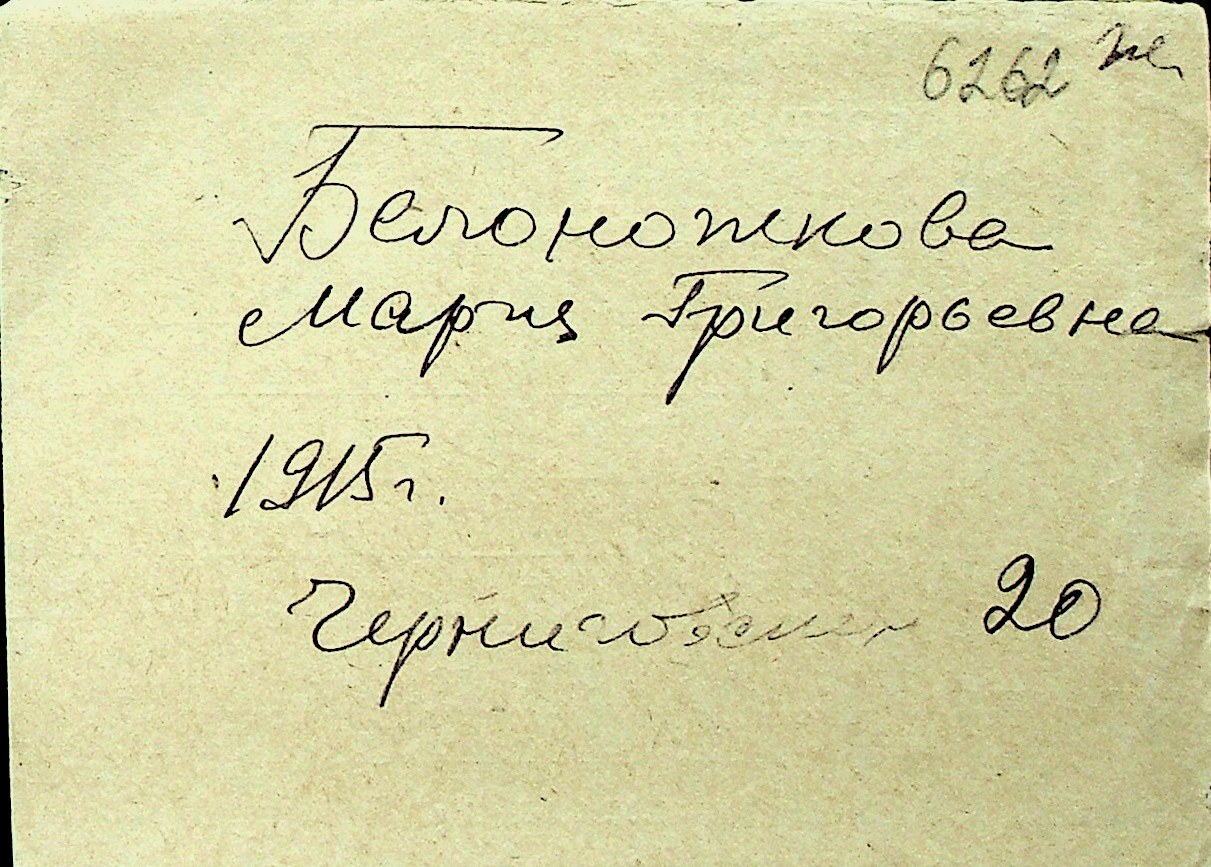 6262
Белоножкова
Мария Григорьевна
1915г.
Черниговская 20